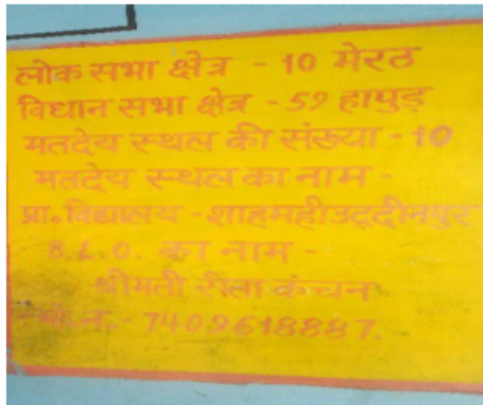 लोक सभा क्षेत्र - 10 मेरठ
विधान सभा क्षेत्र - 59 हापुड़
मतदेय स्थल की संख्या - 10
मतदेय स्थल का नाम -
प्रा. विद्यालय - शाहमहीउद्दीनपुर
B.L.O. का नाम -
श्रीमती रीता कंचन
मो.न. - 7409618887.